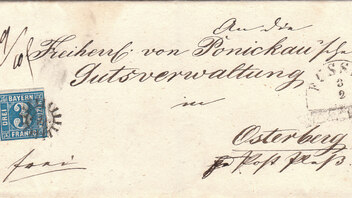 An die
Freiherl. von Ponickau'sche
Gutsverwaltung
in
Osterberg
Post
frei
BAYERN
DREI
3
FRANCO
FÜSS